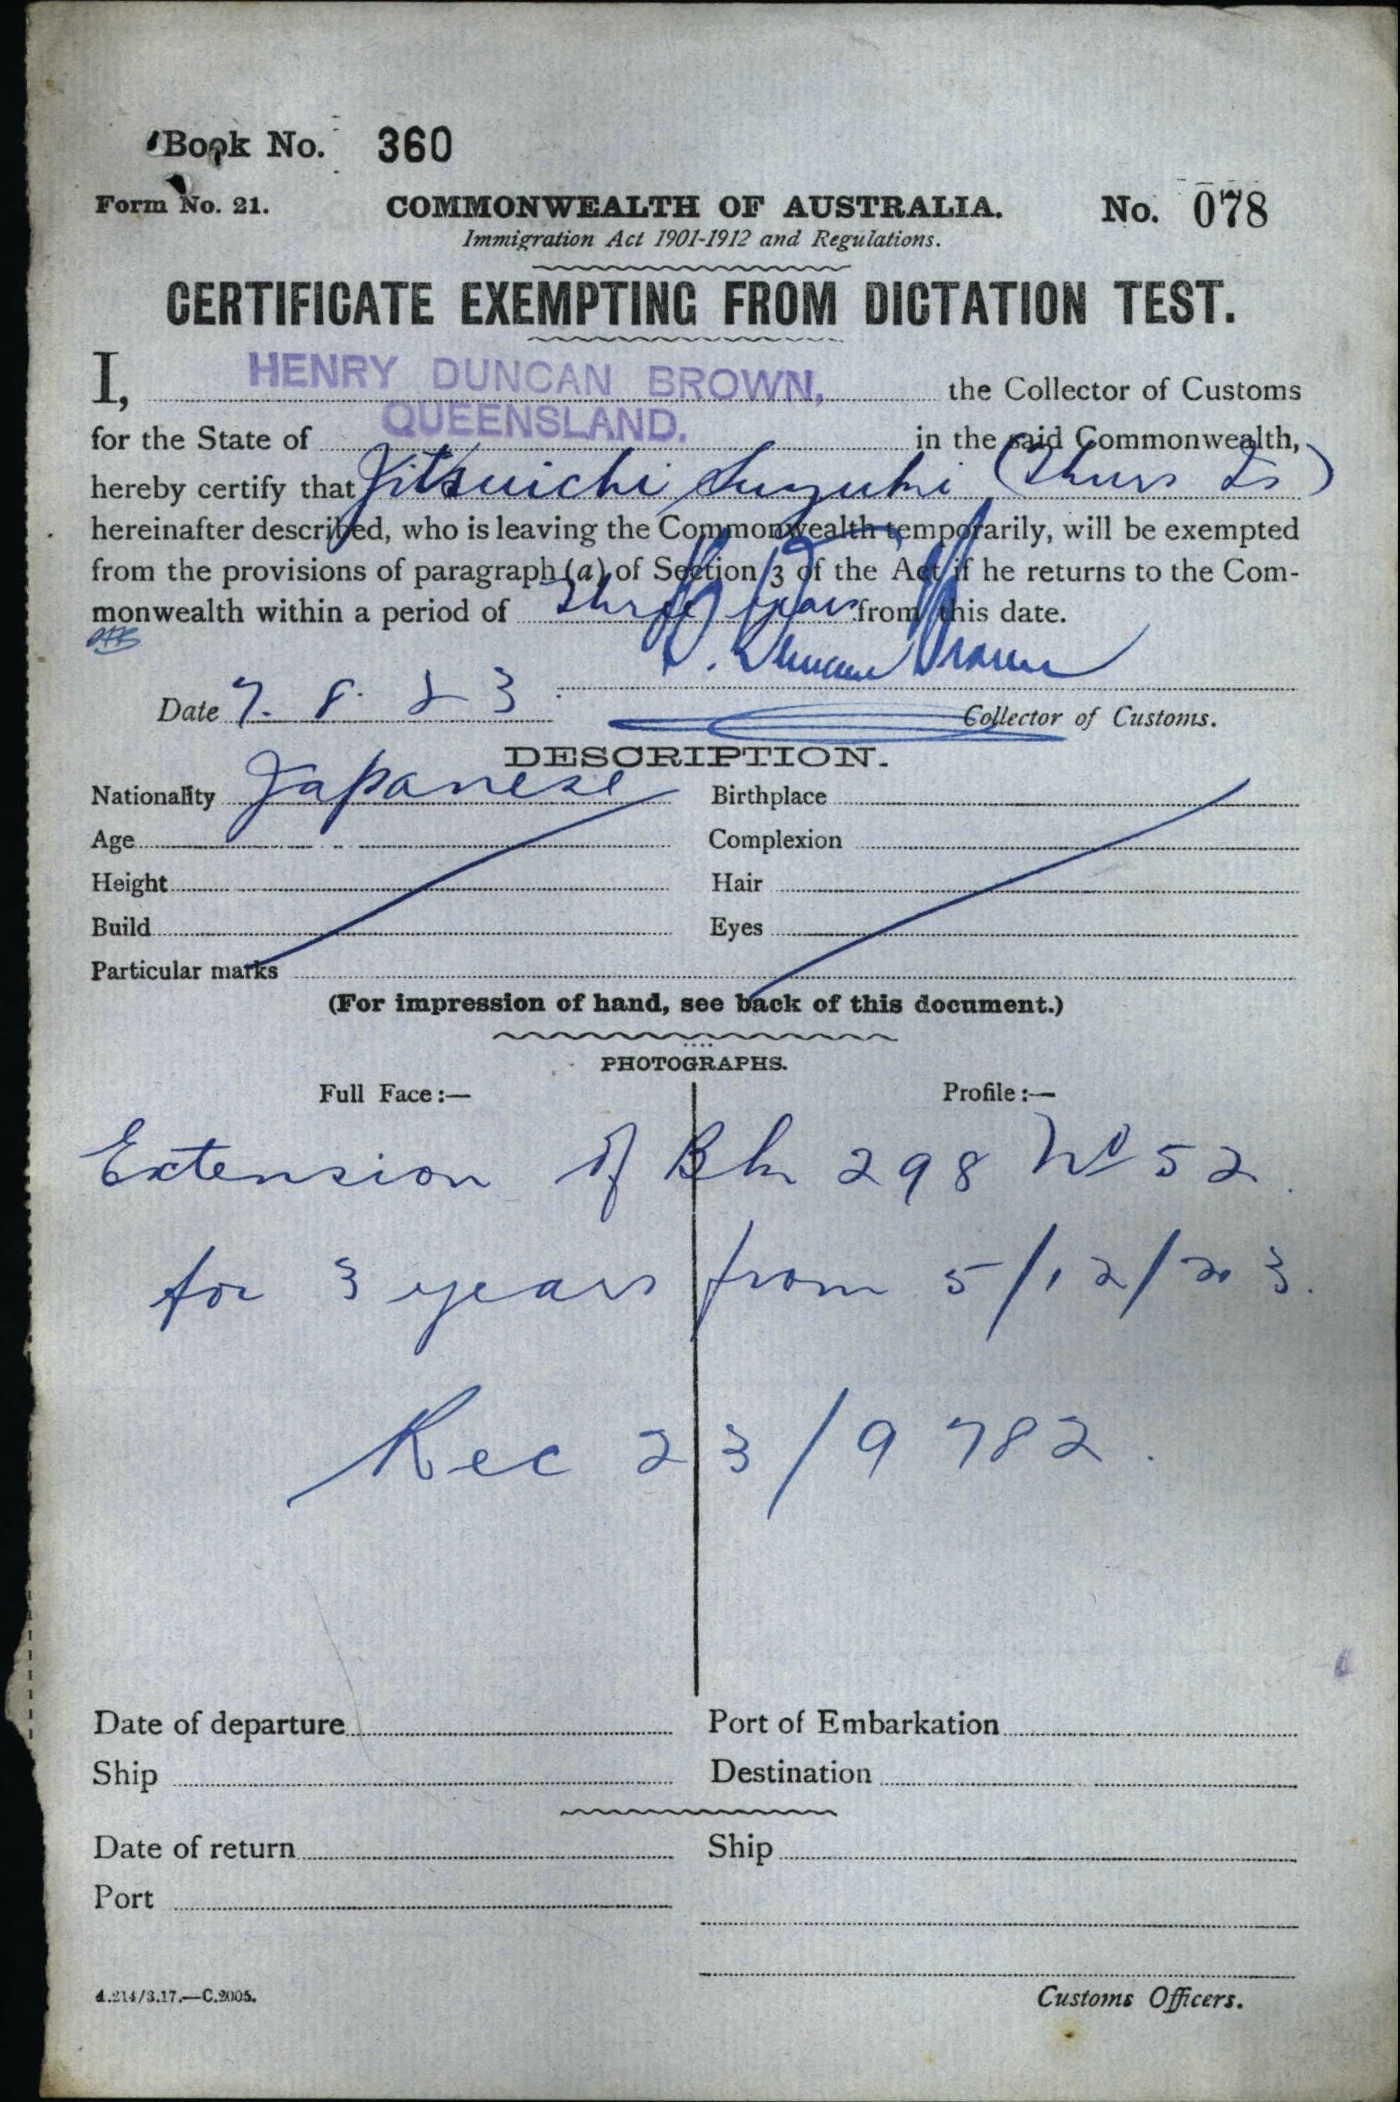 Book No. 360
Form No. 21. COMMONWEALTH OF AUSTRALIA. No. 078
Immigration Act 1901-1912 and Regulations.
CERTIFICATE EXEMPTING FROM DICTATION TEST.
I, HENRY DUNCAN BROWN, the Collector of Customs
for the State of QUEENSLAND. in the said Commonwealth,
hereby certify that Jitsuichi Suzuki (Thurs Is)
hereinafter described, who is leaving the Commonwealth temporarily, will be exempted
from the provisions of paragraph (a) of Section 3 of the Act if he returns to the Com-
monwealth within a period of Three years from this date.
H. Duncan Brown
Date 7. 8. 23. Collector of Customs.
DESCRIPTION.
Nationality Japanese Birthplace
Age Complexion
Height Hair
Build Eyes
Particular marks
(For impression of hand, see back of this document.)
PHOTOGRAPHS.
Full Face:— Profile:—
Extension of Bk 298 No 52.
for 3 years from 5/12/23.
Rec 23/9782.
Date of departure Port of Embarkation
Ship Destination
Date of return Ship
Port
4.214/3.17.—C.2005. Customs Officers.